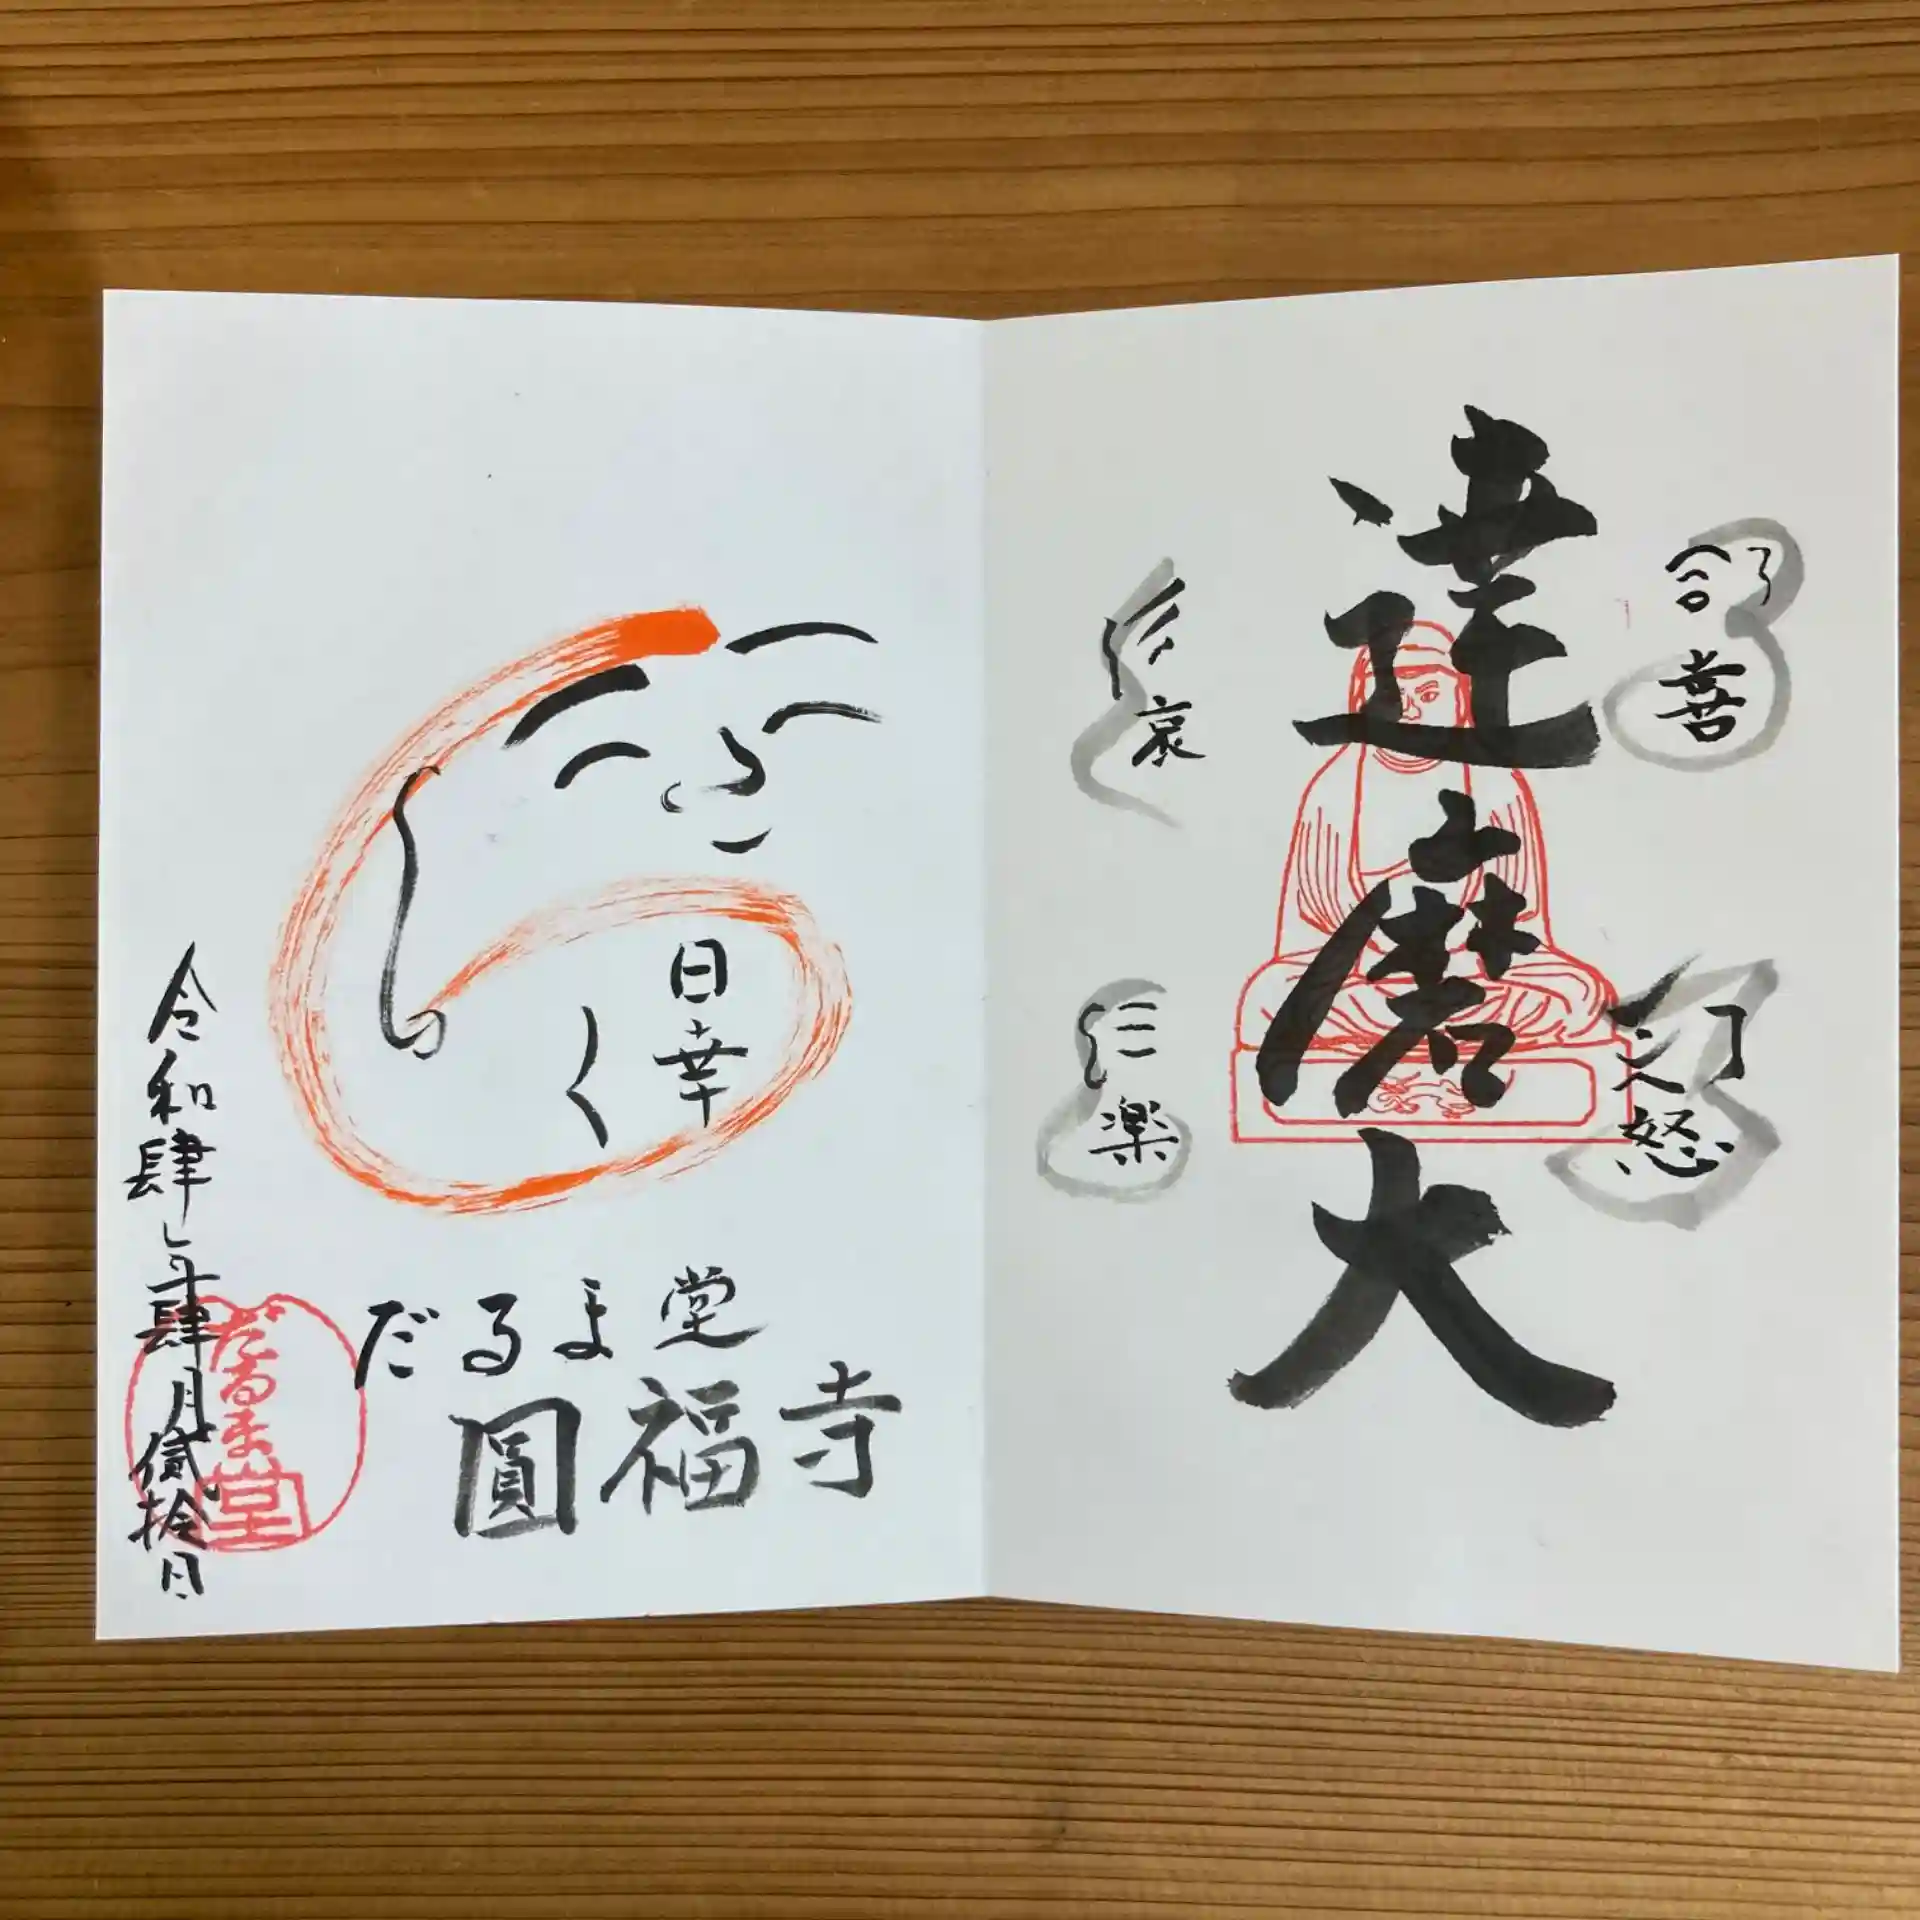 達磨大
喜
怒
哀
楽
日幸
く
だるま堂
圓福寺
令和肆年肆月貮拾日
だるま堂